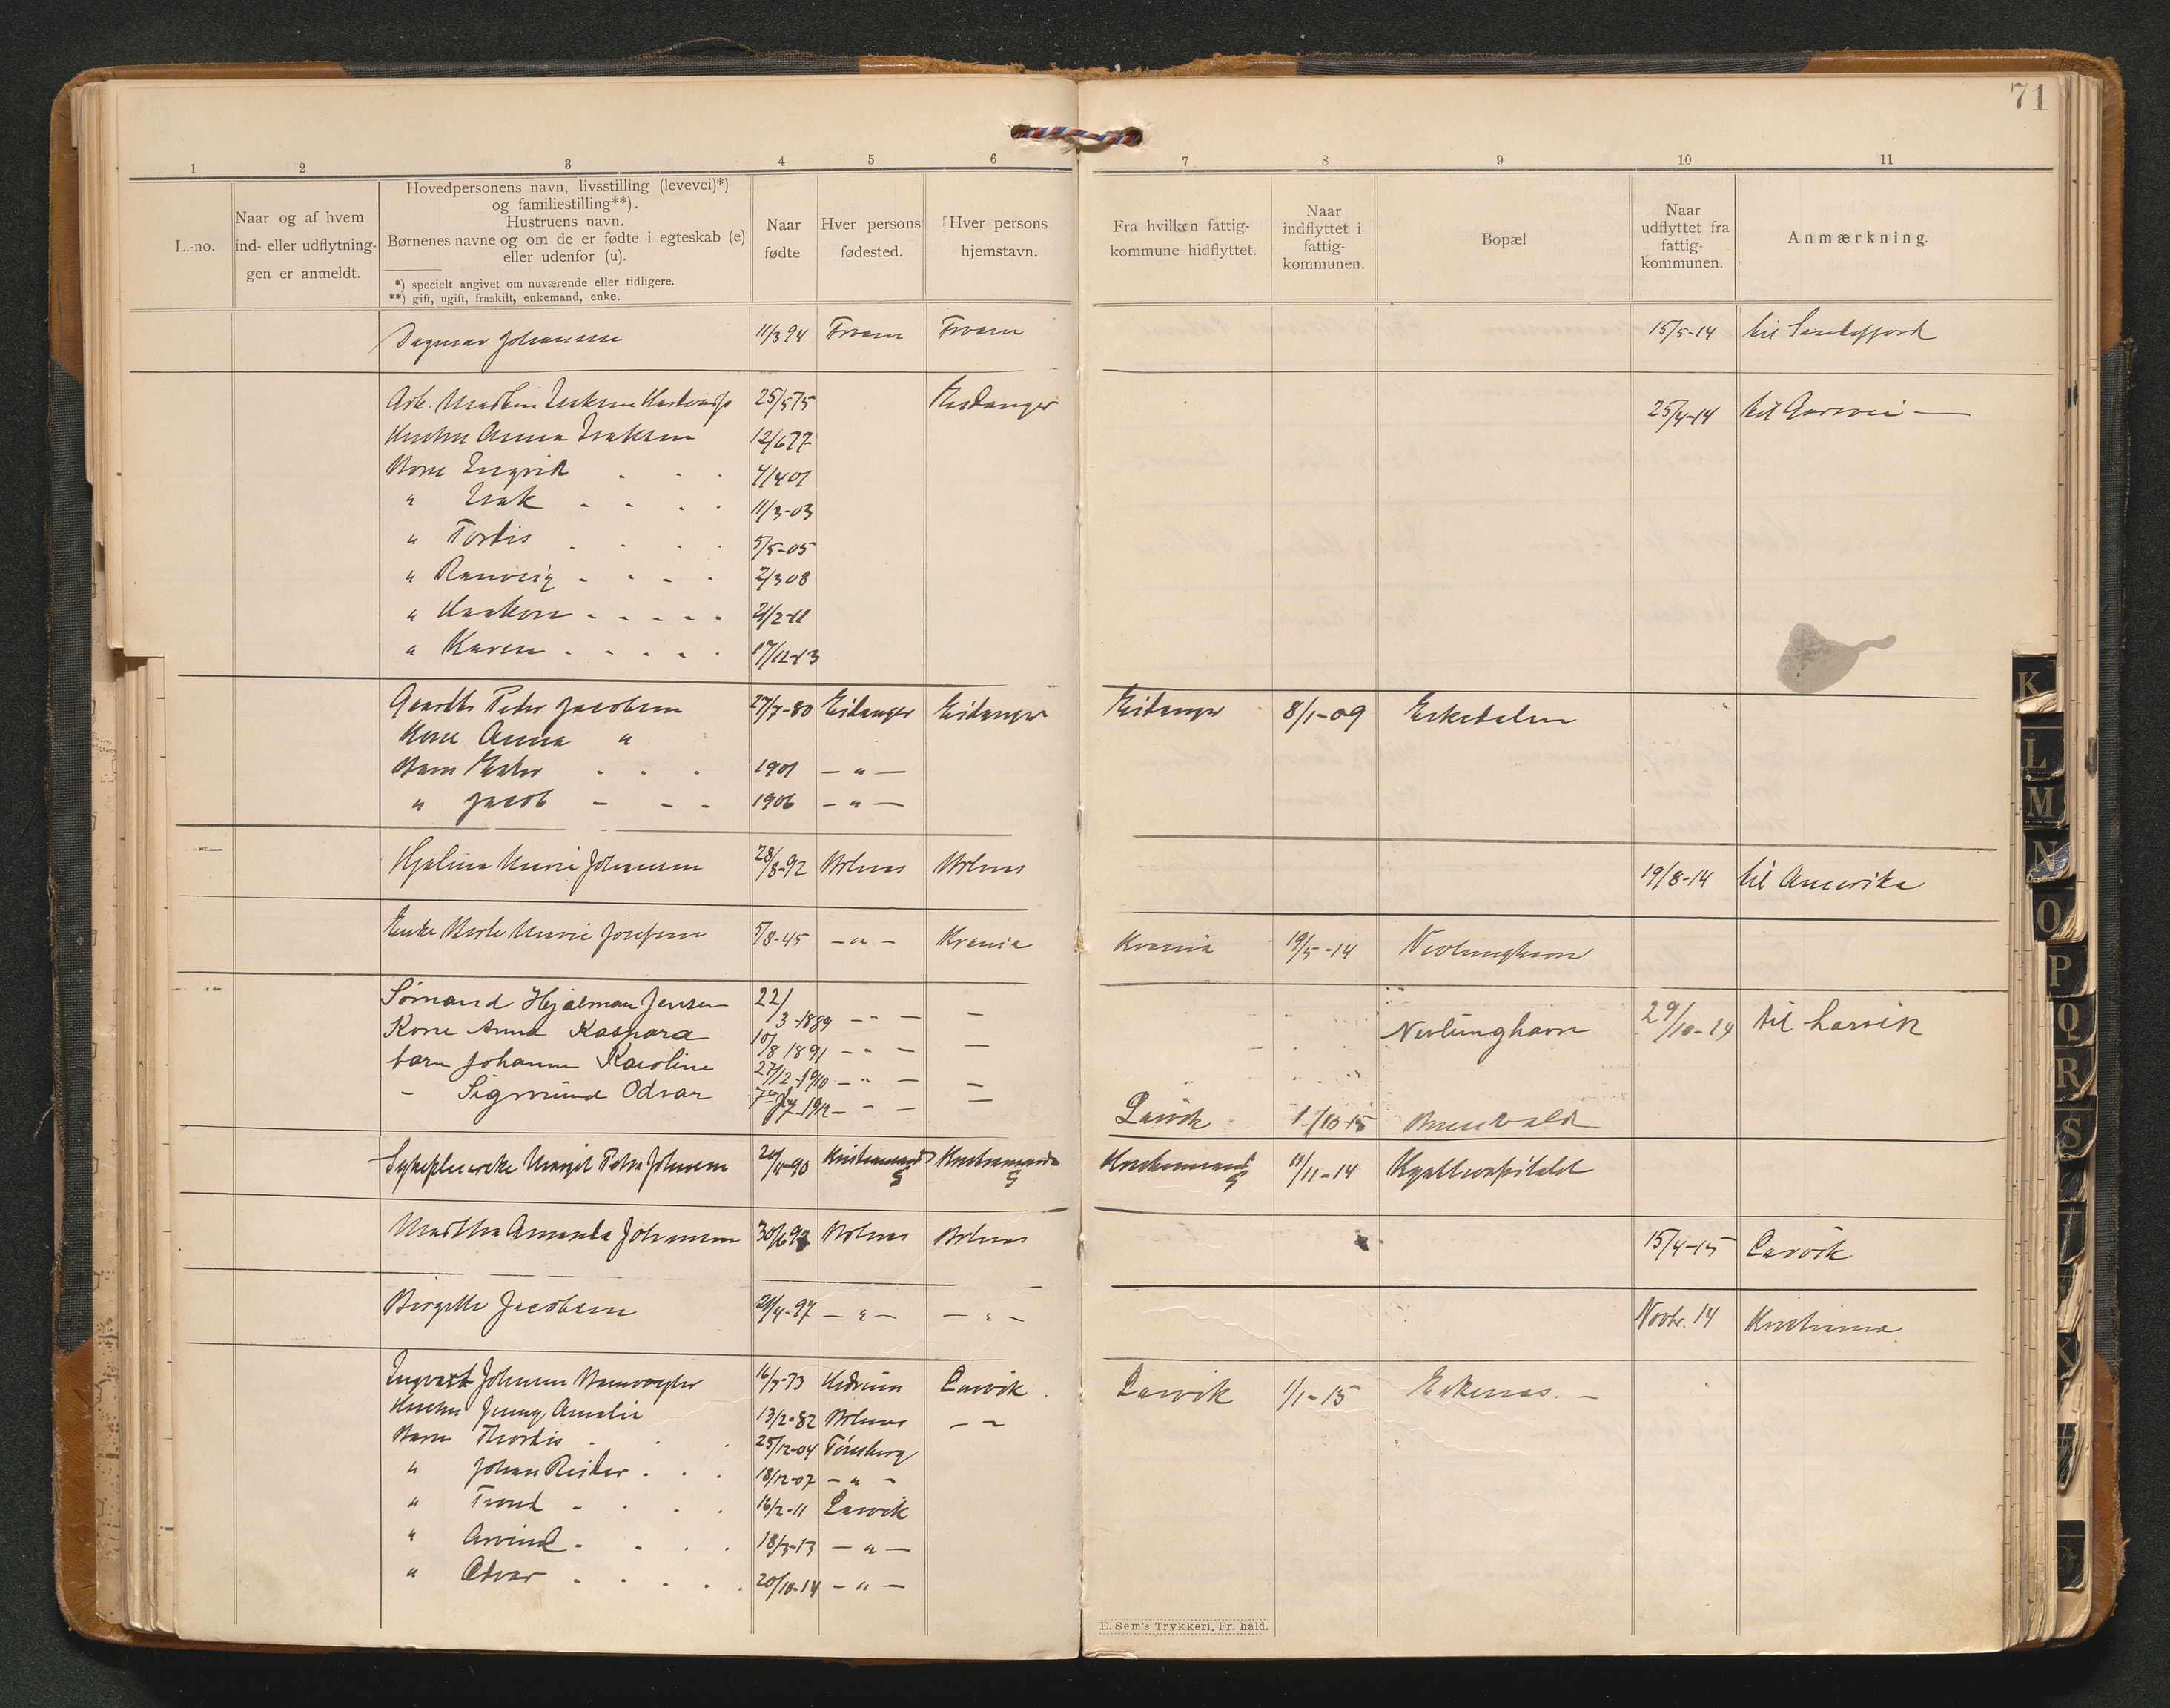 71
1 2 3 4 5 6 7 8 9 10 11
L.-no.
Naar og af hvem ind- eller udflytningen er anmeldt.
Hovedpersonens navn, livsstilling (levevei)*)
og familiestilling**).
Hustruens navn.
Børnenes navne og om de er fødte i egteskab (e)
eller udenfor (u).
*) specielt angivet om nuværende eller tidligere.
**) gift, ugift, fraskilt, enkemand, enke.
Naar fødte
Hver persons fødested.
Hver persons hjemstavn.
Fra hvilken fattigkommune hidflyttet.
Naar indflyttet i fattigkommunen.
Bopæl
Naar udflyttet fra fattigkommunen.
Anmærkning.
Dagmar Johansen 11/3 94 15/5-14 til Sandefjord
Arb. Martin Isaksen 25/5 75 Eidanger 25/4-14 til
Hustru Anna Isaksen 12/6 77
Barn Ingrid 4/4 01
" Isak 11/3-03
" Tordis 5/5-05
" Ranveig 2/3 08
" Haakon 21/2-11
" Karen 17/12-13
Gaardbr Peder Jacobsen 27/7-80 Eidanger Eidanger Eidanger 8/1-09 Eikedalen
Kone Anna "
Barn Ester 1901 — " —
" Jacob 1906 — " —
Hjalma Marie Johansen 28/8-92 Brlnes Brlnes 19/8-14 til Amerika
Enke Marie Josefsen 5/8-45 — " — Krania Krania 19/5-14 Nevlunghavn
Sømand Hjalmar Jensen 22/3-1889 — " — — Nevlunghavn 29/10-14 til Larvik
Kone Anna Kaspara 10/8 1891 — " — —
barn Johanne Karoline 27/12-1910 — " — —
- Sigmund Odvar — " — —
Larvik 1/10-15
Sykepleierske Margit Petra Johansen 20/4-90 Kristiansand S Kristiansand S Kristiansand S 11/11-14
Martha Amanda Johansen 30/6 92 Brlnes Brlnes 15/4-15 Larvik
Birgitte Jacobsen 21/4-97 — " — — " — Novbr. 14 Kristiania
Ingvart Johansen Banevogter 16/7-73 Hedrum Larvik Larvik 1/1-15 Eikenes. —
Hustru Jenny Amalie 13/2-82 Brlnes — "
Barn Thordis 25/12-04 Tønsberg
" Johan Reidar 18/12-07 — " —
" Trond 16/2-11 Larvik
" Arvind 18/3-13 — " —
" Odvar 20/10-14 — " —
E. Sem's Trykkeri, Fr. hald.
K
L
M
N
O
P
Q
R
S